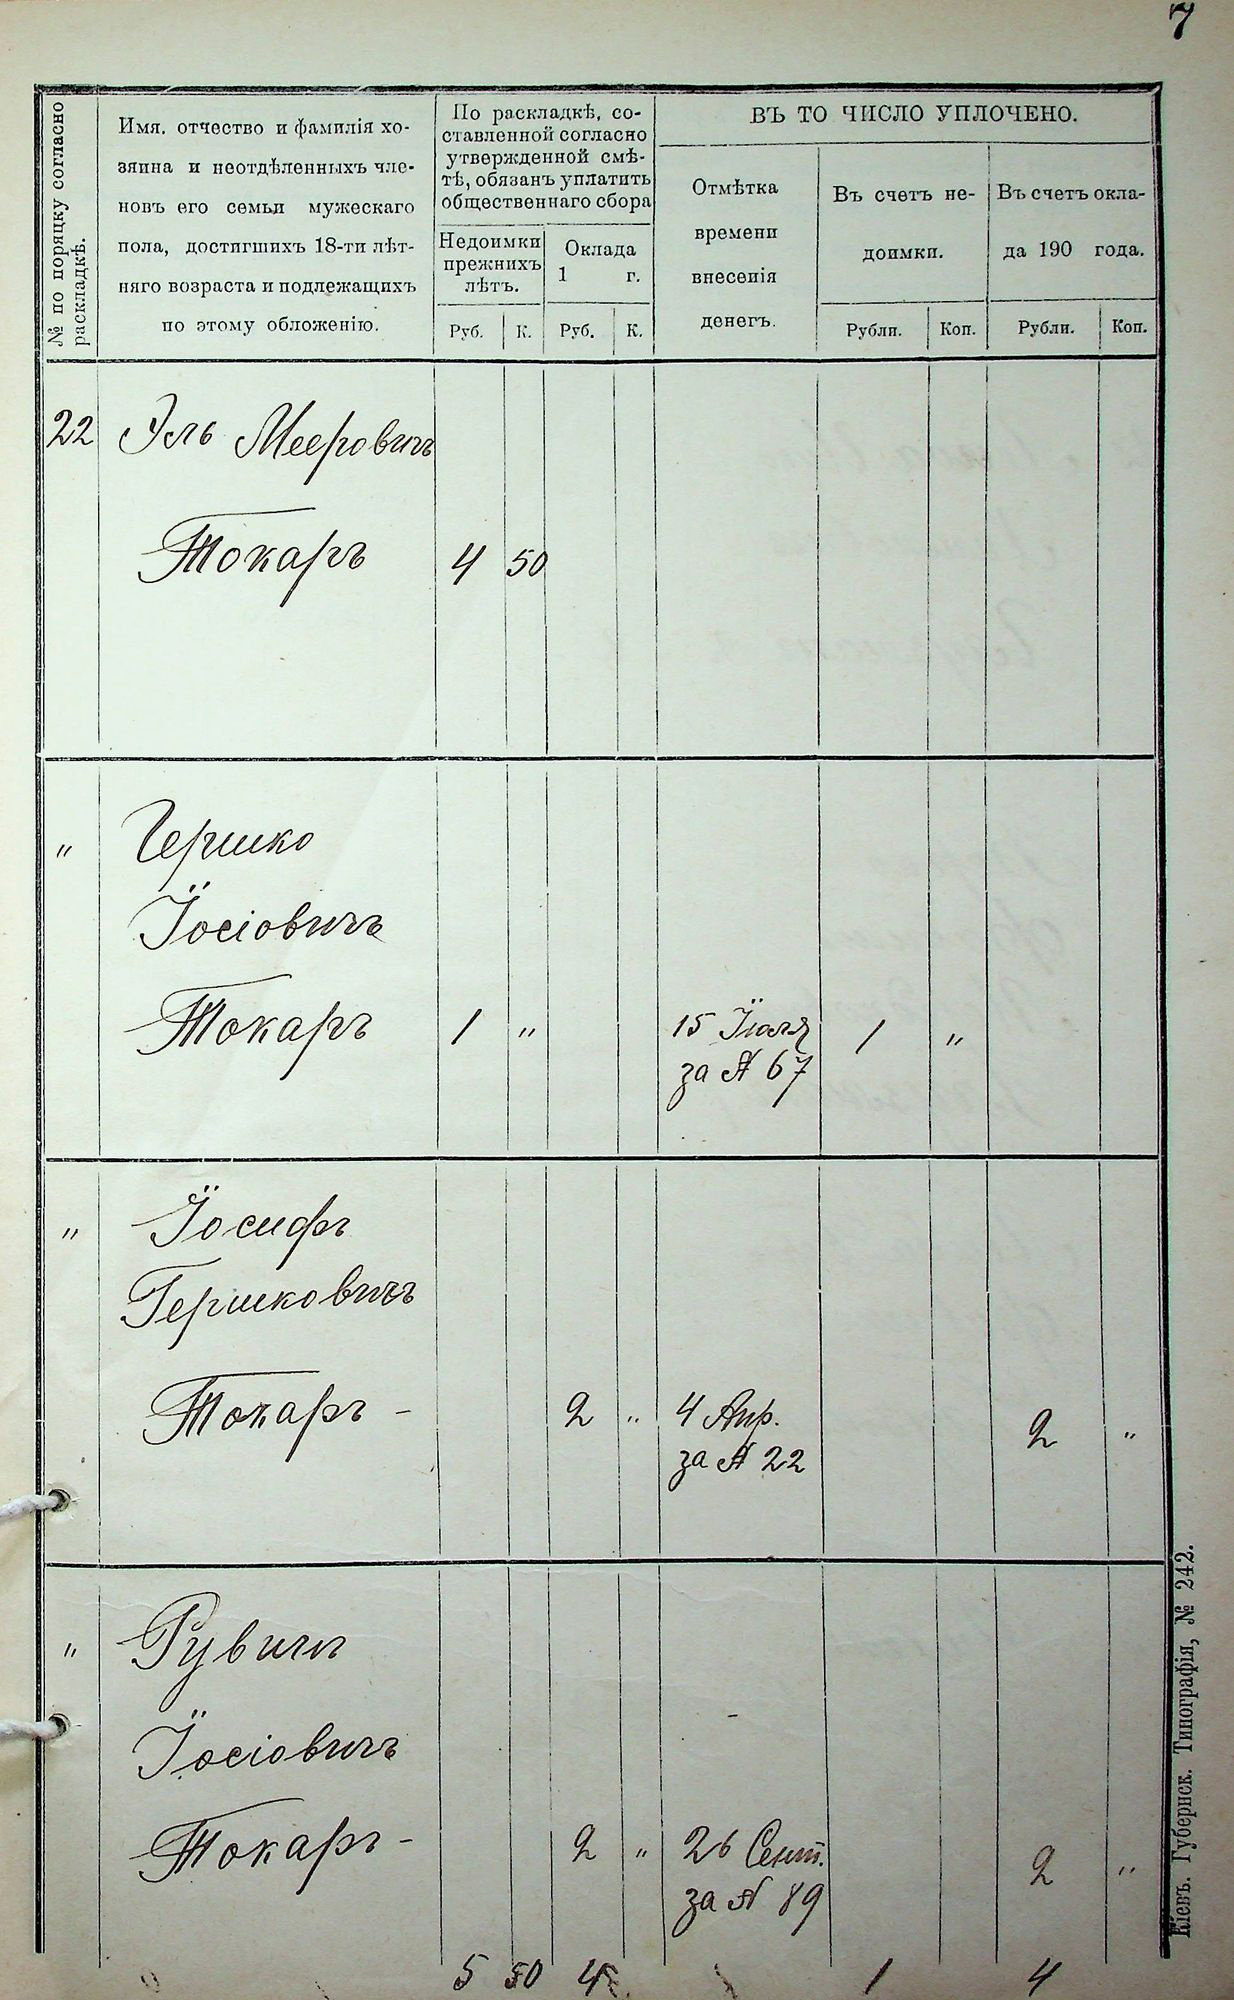 7
№ по поряцку согласно
раскладкѣ.
Имя, отчество и фамилія хо-
зяина и неотдѣленныхъ чле-
новъ его семьи мужескаго
пола, достигшихъ 18-ти лѣт-
няго возраста и подлежащихъ
по этому обложенію.
По раскладкѣ, со-
ставленной согласно
утвержденной смѣ-
тѣ, обязанъ уплатить
общественнаго сбора
Недоимки
прежнихъ
лѣтъ.
Оклада
1 г.
Руб. К. Руб. К.
ВЪ ТО ЧИСЛО УПЛОЧЕНО.
Отмѣтка
времени
внесенія
денегъ.
Въ счетъ не-
доимки.
Въ счетъ окла-
да 190 года.
Рубли. Коп. Рубли. Коп.
22 Эль Мееровичъ
Токаръ 4 50
" Гершко
Іосіовичъ
Токаръ 1 " 15 Іюля 1 "
за № 67
" Іосифъ
Гершковичъ
Токаръ - 2 " 4 Апр. 2 "
за № 22
" Рувинъ
Іосіовичъ
Токаръ - 2 " 26 Сент. 2 "
за № 89
5 50 4 1 4
Кіевъ. Губернск. Типографія, № 242.